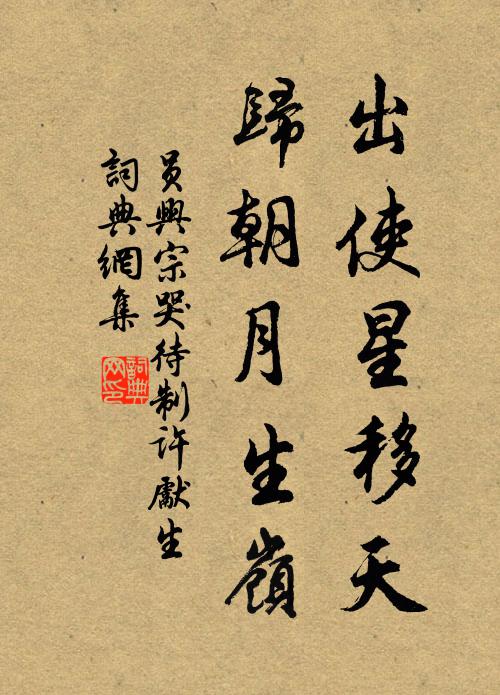 出使星移天
歸朝月生嶺
員興宗哭待制許獻生
詞典網集
詞典
网印